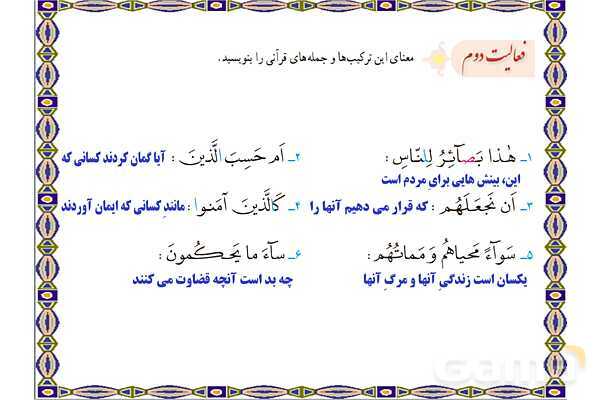 فعالیت دوم
معنای این ترکیب‌ها و جمله‌های قرآنی را بنویسید.
۱ـ هٰذا بَصآئِرُ لِلنّاسِ :
این، بینش هایی برای مردم است
۲ـ اَم حَسِبَ الَّذینَ : آیا گمان کردند کسانی که
۳ـ اَن نَجعَلَهُم : که قرار می دهیم آنها را
۴ـ کَالَّذینَ آمَنوا : مانندِ کسانی که ایمان آوردند
۵ـ سَوآءً مَحیاهُم وَ مَماتُهُم :
یکسان است زندگیِ آنها و مرگِ آنها
۶ـ سآءَ ما یَحکُمونَ :
چه بد است آنچه قضاوت می کنند
Gama